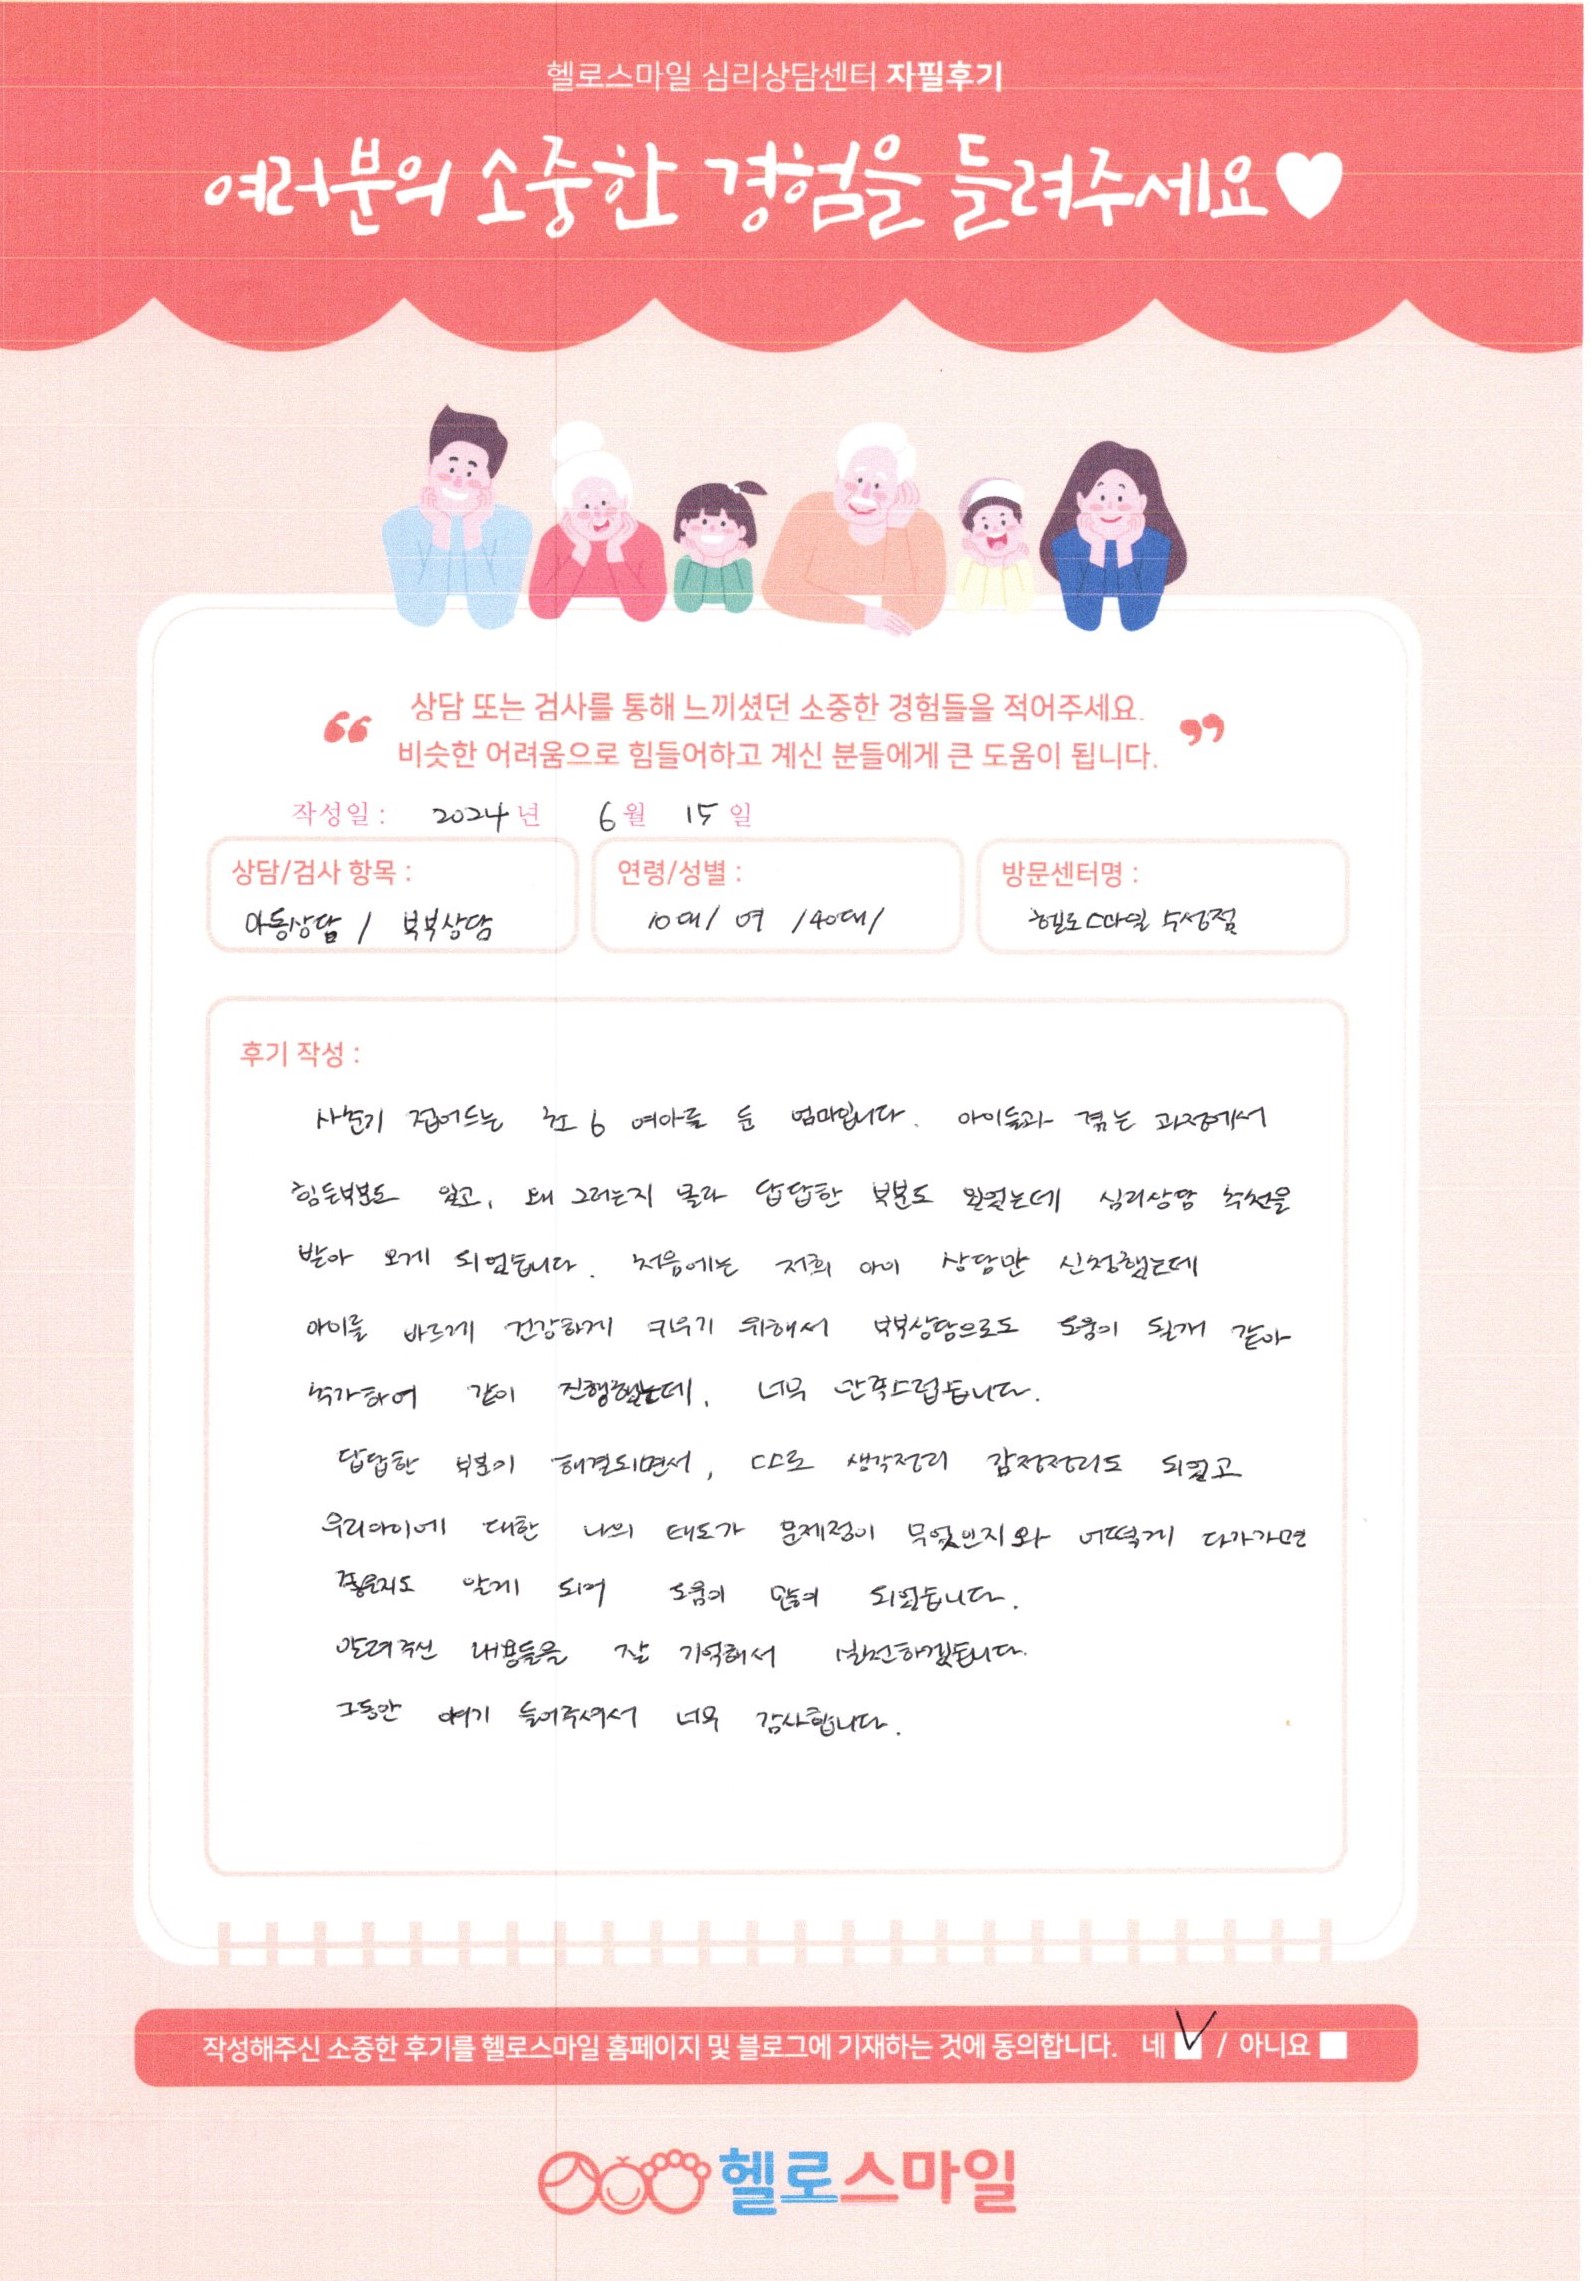 헬로스마일 심리상담센터 자필후기
여러분의 소중한 경험을 들려주세요♥
“ 상담 또는 검사를 통해 느끼셨던 소중한 경험들을 적어주세요. ”
비슷한 어려움으로 힘들어하고 계신 분들에게 큰 도움이 됩니다.
작성일 : 2024 년 6 월 15 일
상담/검사 항목 :
아동상담 / 부부상담
연령/성별 :
10대/ 여 /40대/
방문센터명 :
헬로스마일 수성점
후기 작성 :
사춘기 접어드는 초6 여아를 둔 엄마입니다. 아이들과 겪는 과정에서
힘든부분도 있고, 왜 그러는지 몰라 답답한 부분도 있었는데 심리상담 추천을
받아 오게 되었습니다. 처음에는 저희 아이 상담만 신청했는데
아이를 바르게 건강하게 키우기 위해서 부부상담으로도 도움이 될거 같아
추가하여 같이 진행했는데, 너무 만족스럽습니다.
답답한 부분이 해결되면서, 스스로 생각정리 감정정리도 되었고
우리아이에 대한 나의 태도가 문제점이 무엇인지와 어떻게 다가가면
좋을지도 알게 되어 도움이 많이 되었습니다.
알려주신 내용들을 잘 기억해서 실천하겠습니다.
그동안 얘기 들어주셔서 너무 감사합니다.
작성해주신 소중한 후기를 헬로스마일 홈페이지 및 블로그에 기재하는 것에 동의합니다. 네 V / 아니요
헬로스마일